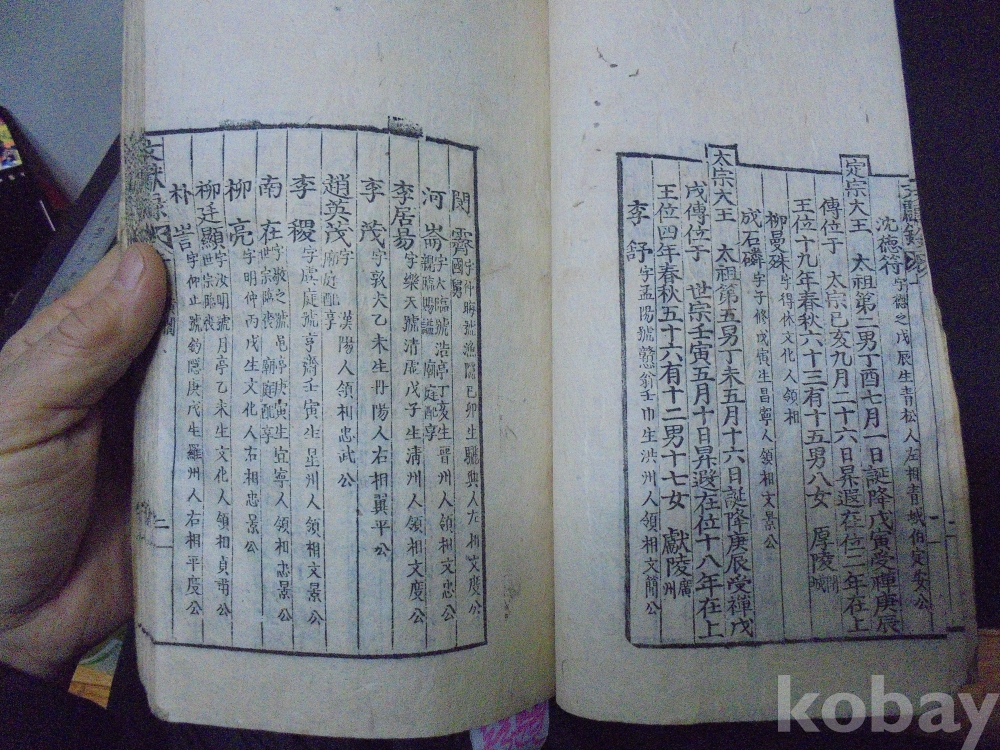 沈德符 字德之戊辰生青松人左相青城伯定安公
定宗大王 太祖第二男丁酉七月一日誕降戊寅受禪庚辰
傳位于 太宗己亥九月二十六日昇遐在位二年在上
王位十九年春秋六十三有十五男八女 厚陵開城
柳曼殊 字得休文化人領相
成石磷 字子修戊寅生昌寧人領相文景公
太宗大王 太祖第五男丁未五月十六日誕降庚辰受禪戊
戌傳位于 世宗壬寅五月十日昇遐在位十八年在上
王位四年春秋五十六有十二男十七女 獻陵廣州
李舒 字孟陽號戇翁壬申生洪州人領相文簡公
閔霽 字仲晦號漁隱己卯生驪興人左相文度公
國舅
河崙 字大臨號浩亭丁亥生晉州人領相文忠公
親臨賜諡 廟庭配享
李居昜 字樂天號清虛戊子生清州人領相文度公
李茂 字敦夫乙未生丹陽人右相翼平公
趙英茂 字 漢陽人領相忠武公
廟庭配享
李稷 字虞庭號亨齋壬寅生星州人領相文景公
南在 字敬之號龜亭 寅生宜寧人領相忠景公
世宗臨喪 廟庭配享
柳亮 字明仲丙戌生文化人右相忠景公
柳廷顯 字汝明號月亭乙未生文化人領相貞肅公
世宗臨喪
朴訔 字仰止號釣隱庚戌生羅州人右相平度公
文獻錄
二
kobay